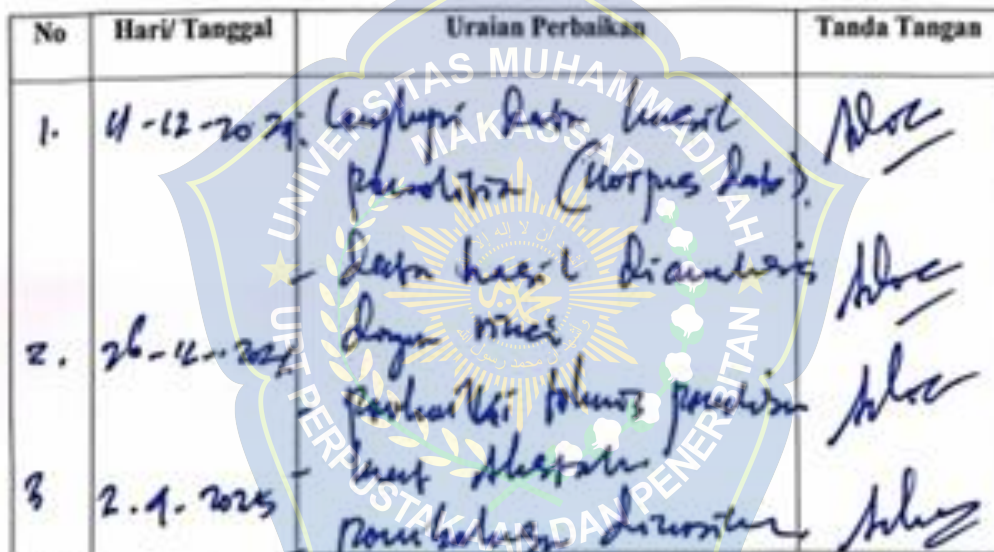 No Hari/ Tanggal Uraian Perbaikan Tanda Tangan
1. 11-12-2024. Lengkapi data hasil
penelitian (Korpus data).
- data hasil dianalisis
dengan rinci
2. 26-12-2024
- perbaiki teknis penulisan
- buat abstrak
3 2.9.2025
- pembahasan
UNIVERSITAS MUHAMMADIYAH
MAKASSAR
UPT PERPUSTAKAAN DAN PENERBITAN